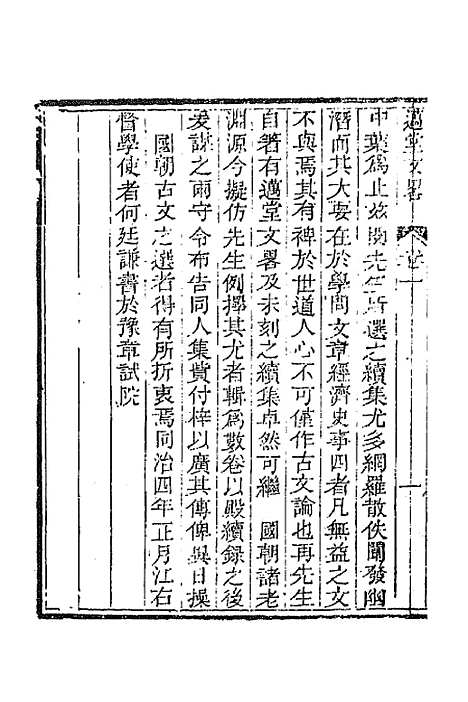 邁堂文畧 卷一 一
中葉為止茲閱先生所選之續集尤多網羅散佚闡發幽
潛而其大要在於學問文章經濟史事四者凡無益之文
不與焉其有裨於世道人心不可僅作古文論也再先生
自著有邁堂文畧及未刻之續集卓然可繼 國朝諸老
淵源今擬仿先生例擇其尤者輯為數卷以殿續錄之後
爰謀之兩守令布告同人集貲付梓以廣其傳俾異日操
國朝古文之選者得有所折衷焉同治四年正月江右
督學使者何廷謙書於豫章試院